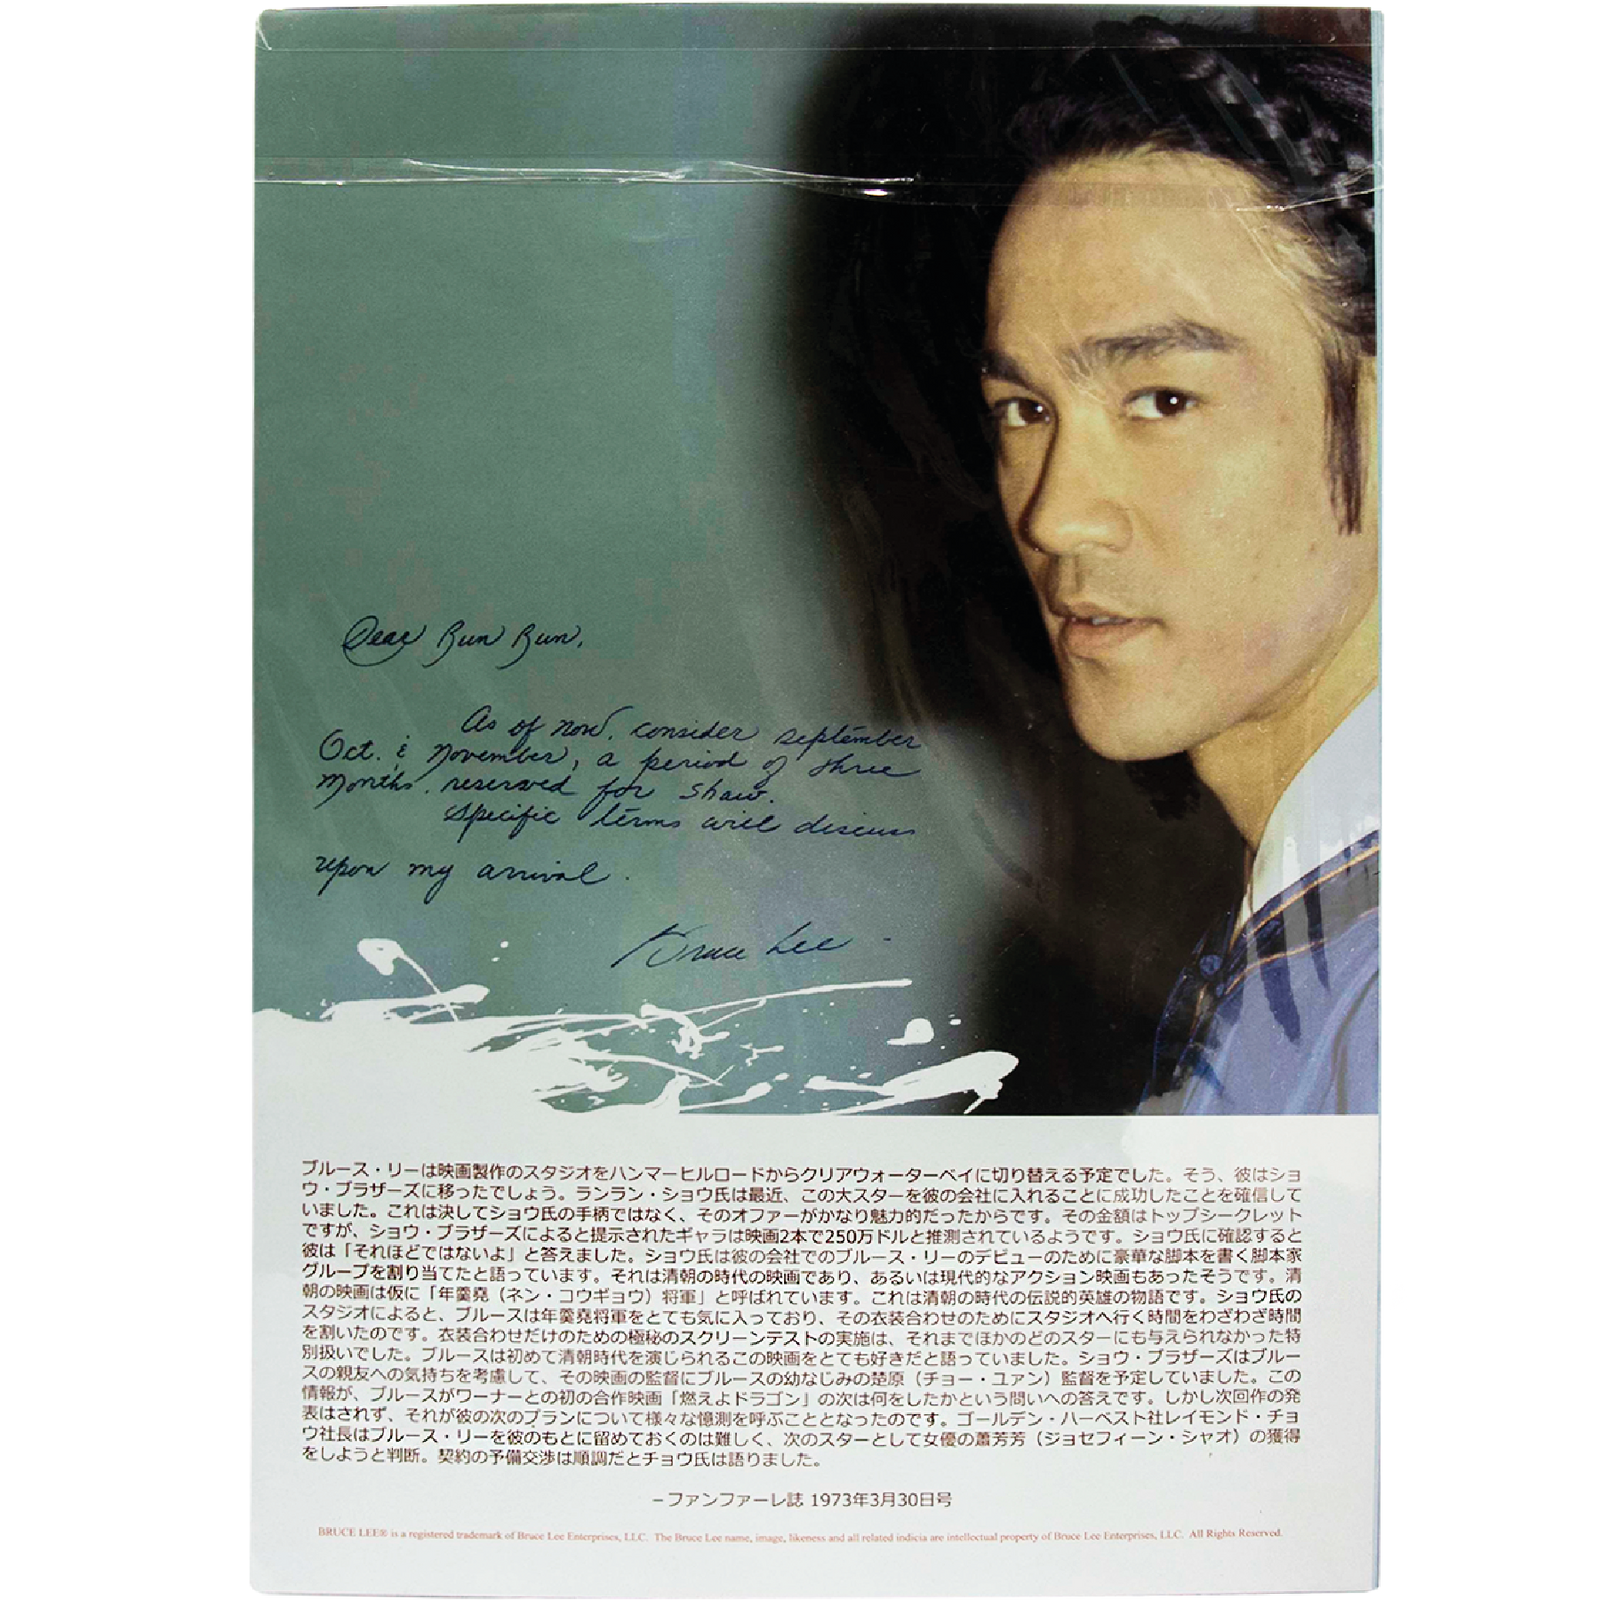 Dear Run Run,
As of now, consider september
Oct. & November, a period of three
months, reserved for Shaw.
Specific terms will discuss
upon my arrival.
Bruce Lee
ブルース・リーは映画製作のスタジオをハンマーヒルロードからクリアウォーターベイに切り替える予定でした。そう、彼はショ
ウ・ブラザーズに移ったでしょう。ランラン・ショウ氏は最近、この大スターを彼の会社に入れることに成功したことを確信して
いました。これは決してショウ氏の手柄ではなく、そのオファーがかなり魅力的だったからです。その金額はトップシークレット
ですが、ショウ・ブラザーズによると提示されたギャラは映画2本で250万ドルと推測されているようです。ショウ氏に確認すると
彼は「それほどではないよ」と答えました。ショウ氏は彼の会社でのブルース・リーのデビューのために豪華な脚本を書く脚本家
グループを割り当てたと語っています。それは清朝の時代の映画であり、あるいは現代的なアクション映画もあったそうです。清
朝の映画は仮に「年羹堯（ネン・コウギョウ）将軍」と呼ばれています。これは清朝の時代の伝説的英雄の物語です。ショウ氏の
スタジオによると、ブルースは年羹堯将軍をとても気に入っており、その衣装合わせのためにスタジオへ行く時間をわざわざ時間
を割いたのです。衣装合わせだけのための極秘のスクリーンテストの実施は、それまでほかのどのスターにも与えられなかった特
別扱いでした。ブルースは初めて清朝時代を演じられるこの映画をとても好きだと語っていました。ショウ・ブラザーズはブルー
スの親友への気持ちを考慮して、その映画の監督にブルースの幼なじみの楚原（チョー・ユアン）監督を予定していました。この
情報が、ブルースがワーナーとの初の合作映画「燃えよドラゴン」の次は何をしたかという問いへの答えです。しかし次回作の発
表はされず、それが彼の次のプランについて様々な憶測を呼ぶこととなったのです。ゴールデン・ハーベスト社レイモンド・チョ
ウ社長はブルース・リーを彼のもとに留めておくのは難しく、次のスターとして女優の蕭芳芳（ジョセフィーン・シャオ）の獲得
をしようと判断。契約の予備交渉は順調だとチョウ氏は語りました。
–ファンファーレ誌 1973年3月30日号
BRUCE LEE® is a registered trademark of Bruce Lee Enterprises, LLC. The Bruce Lee name, image, likeness and all related indicia are intellectual property of Bruce Lee Enterprises, LLC. All Rights Reserved.